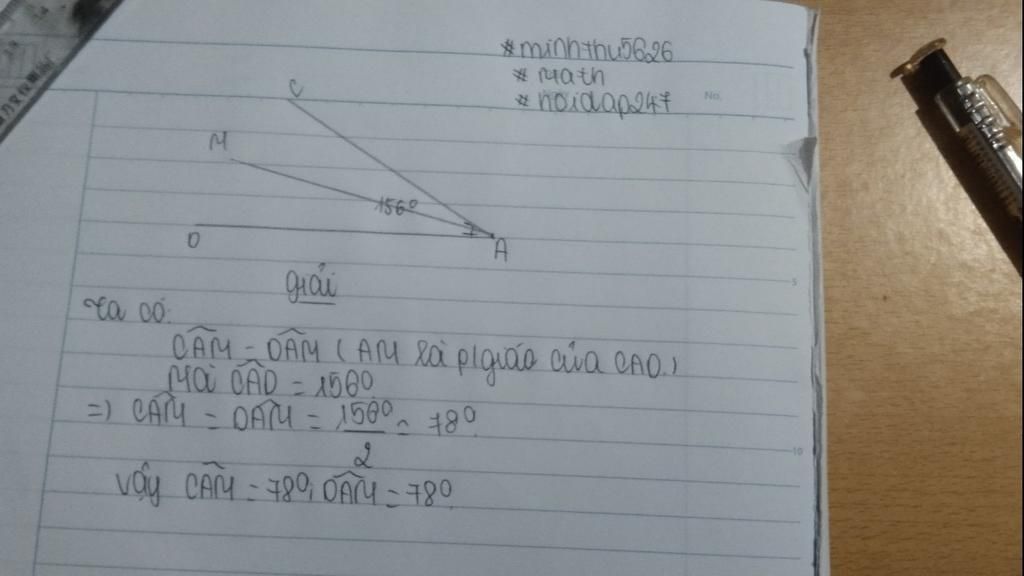 #minhthu5626
# Math
# hoidap247
No.
C
M
156°
O
A
giải
Ta có:
CAM = OAM (AM là p/giác của CAO.)
Mà CAO = 156°
=) CAM = OAM = 156° = 78°
2
Vậy CAM = 78°; OAM = 78°
5
10